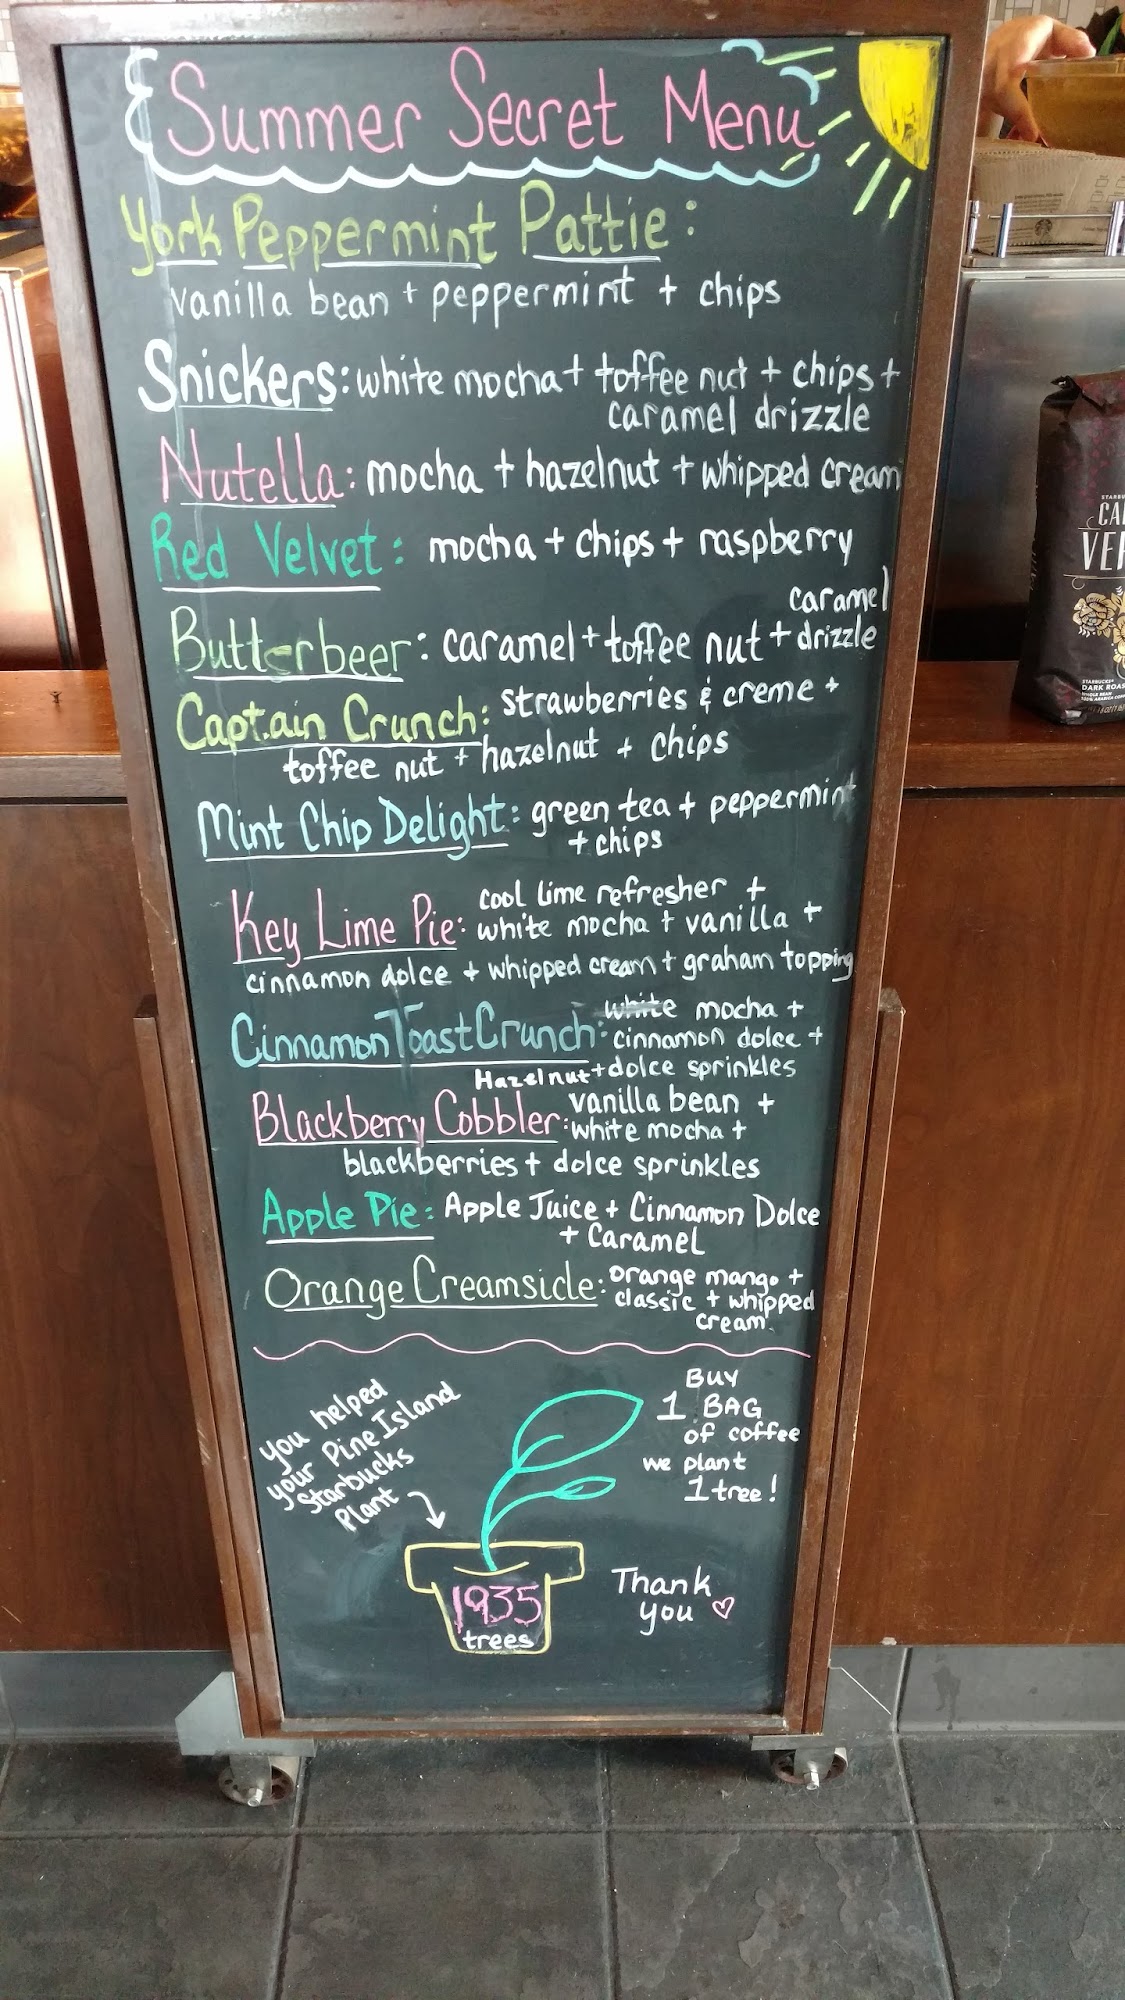 Summer Secret Menu
York Peppermint Pattie:
vanilla bean + peppermint + chips
Snickers: white mocha + toffee nut + chips +
caramel drizzle
Nutella: mocha + hazelnut + whipped cream
Red Velvet: mocha + chips + raspberry
caramel
Butterbeer: caramel + toffee nut + drizzle
Captain Crunch: strawberries & creme +
toffee nut + hazelnut + chips
Mint Chip Delight: green tea + peppermint
+ chips
cool lime refresher +
Key Lime Pie: white mocha + vanilla +
cinnamon dolce + whipped cream + graham topping
white mocha +
Cinnamon Toast Crunch: cinnamon dolce +
Hazelnut + dolce sprinkles
vanilla bean +
Blackberry Cobbler: white mocha +
blackberries + dolce sprinkles
Apple Pie: Apple Juice + Cinnamon Dolce
+ Caramel
Orange Creamsicle: orange mango +
classic + whipped
cream.
you helped
your Pine Island
Starbucks
Plant
BUY
1 BAG
of coffee
we plant
1 tree!
1935
trees
Thank
you
STARBU
CA
VER
STARBUCKS
DARK ROAS